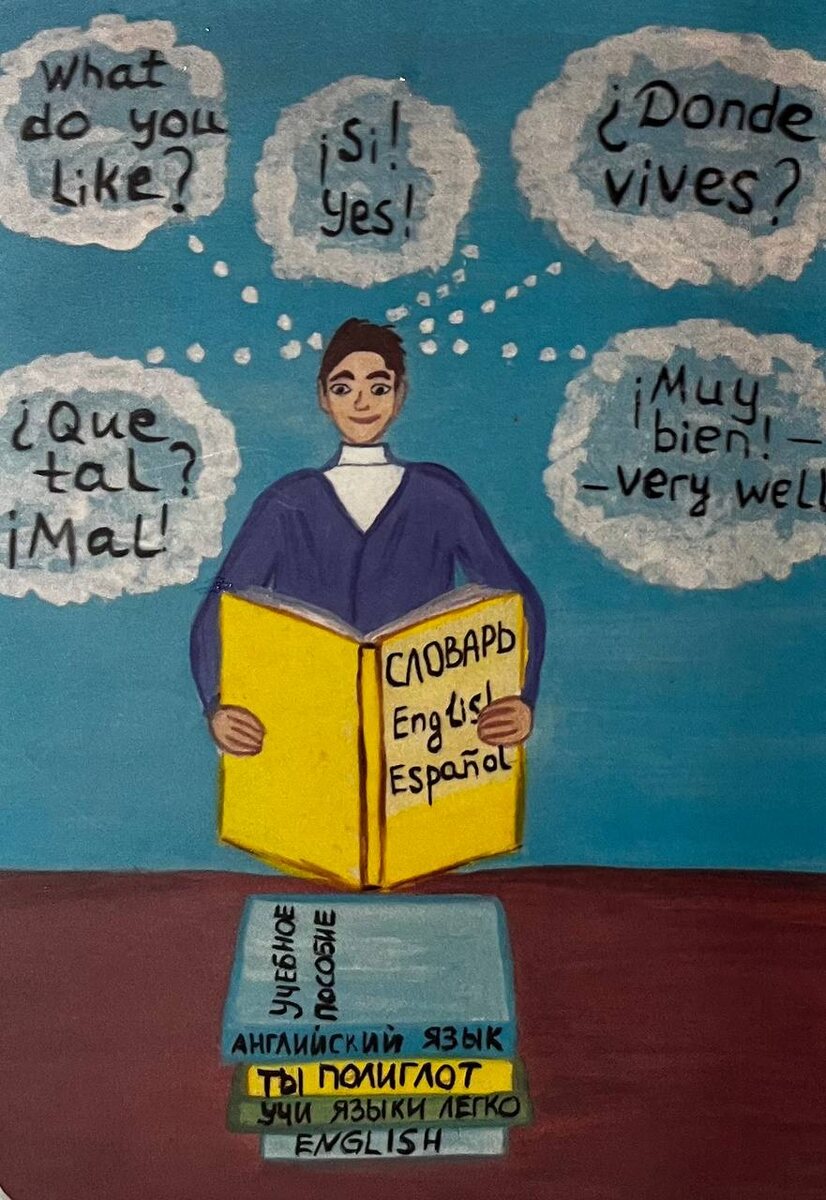 What
do you
Like?
¡Si!
Yes!
¿Donde
vives?
¿Que
tal?
¡Mal!
¡Muy
bien! –
– very well
СЛОВАРЬ
English
Español
УЧЕБНОЕ
ПОСОБИЕ
АНГЛИЙСКИЙ ЯЗЫК
ТЫ ПОЛИГЛОТ
УЧИ ЯЗЫКИ ЛЕГКО
ENGLISH